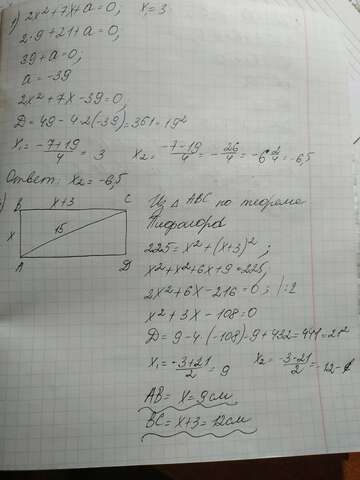 1) 2x²+7x+a=0;   x₁=3
2·9+21+a=0;
39+a=0;
a=-39
2x²+7x-39=0;
D=49-4·2(-39)=361=19²
x₁=\frac{-7+19}{4}=3   x₂=\frac{-7-19}{4}=-\frac{26}{4}=-6\frac{2}{4}=-6,5
Ответ: x₂=-6,5
B   x+3   C
Из △ ABC по теореме
Пифагора
x   15
225=x²+(x+3)²;
A   D
x²+x²+6x+9=225;
2x²+6x-216=0; |:2
x²+3x-108=0
D=9-4·(-108)=9+432=441=21²
x₁=\frac{-3+21}{2}=9   x₂=\frac{-3-21}{2}=-12
AB=x=9см
BC=x+3=12см